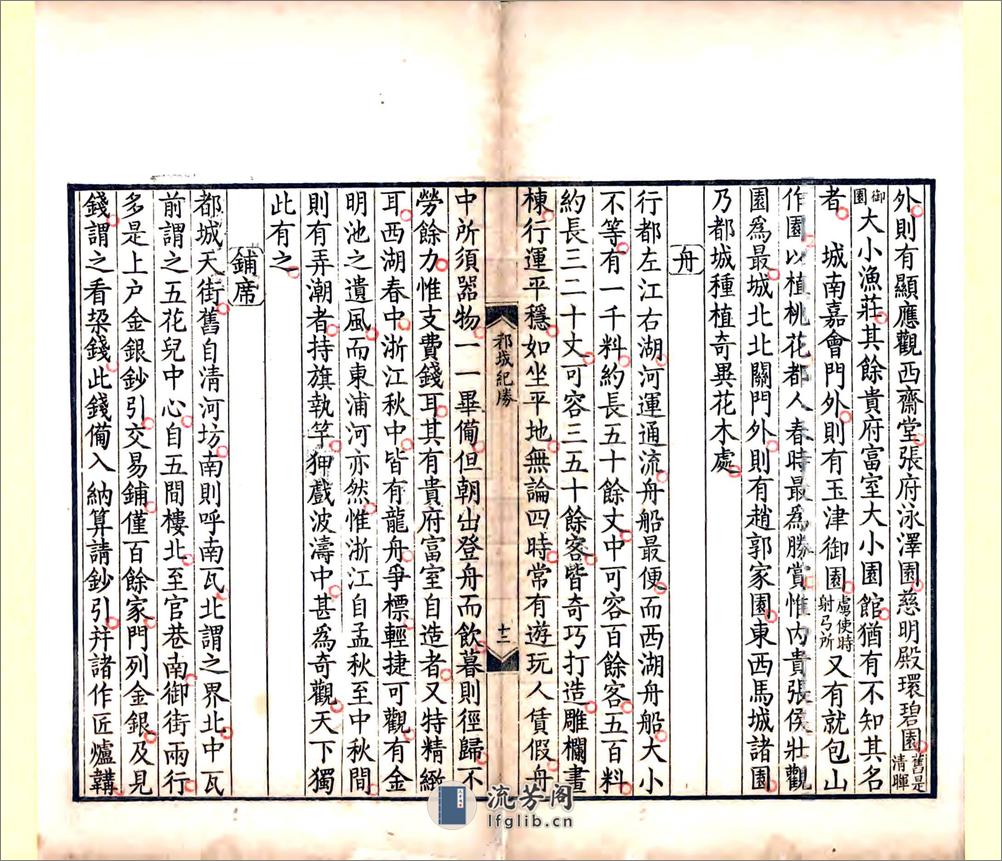 外則有顯應觀西齋堂張府泳澤園慈明殿環碧園舊是清暉
御園大小漁莊其餘貴府富室大小園館猶有不知其名
者　城南嘉會門外則有玉津御園虜使時射弓所又有就包山
作園以植桃花都人春時最爲勝賞惟内貴張侯壯觀
園爲最城北北關門外則有趙郭家園東西馬城諸園
乃都城種植奇異花木處
舟
行都左江右湖河運通流舟船最便而西湖舟船大小
不等有一千料約長五十餘丈中可容百餘客五百料
約長三二十丈可容三五十餘客皆奇巧打造雕欄畫
棟行運平穩如坐平地無論四時常有遊玩人賃假舟
都城紀勝
十二
中所須器物一一畢備但朝出登舟而飲暮則徑歸不
勞餘力惟支費錢耳其有貴府富室自造者又特精緻
耳西湖春中浙江秋中皆有龍舟爭標輕捷可觀有金
明池之遺風而東浦河亦然惟浙江自孟秋至中秋間
則有弄潮者持旗執竿狎戲波濤中甚爲奇觀天下獨
此有之
鋪席
都城天街舊自清河坊南則呼南瓦北謂之界北中瓦
前謂之五花兒中心自五間樓北至官巷南御街兩行
多是上户金銀鈔引交易鋪僅百餘家門列金銀及見
錢謂之看垜錢此錢備入納算請鈔引幷諸作匠爐韛
流芳阁
lfglib.cn